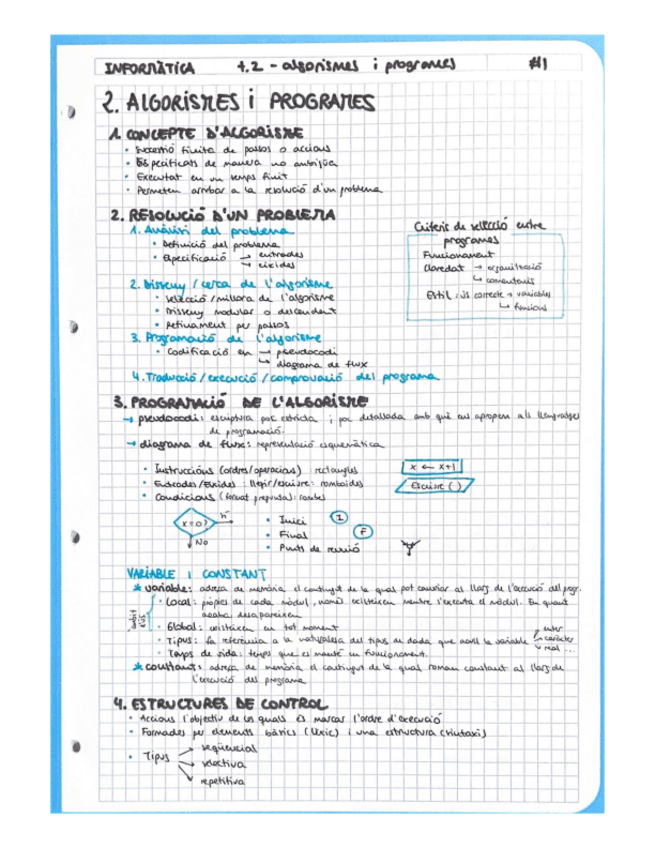 INFORMÀTICA 4.2 - algorismes i programes #1
2. ALGORISMES i PROGRAMES
1. CONCEPTE D'ALGORISME
• Successió finita de passos o accions
• Especificats de manera no ambigüa
• Executat en un temps finit
• Permeten arribar a la resolució d'un problema
2. RESOLUCIÓ D'UN PROBLEMA
1. Anàlisi del problema
• Definició del problema
• Especificació → entrades
→ eixides
2. Disseny / cerca de l'algorisme
• selecció/millora de l'algorisme
• Disseny modular o descendent
• Refinament per passos
3. Programació de l'algorisme
• Codificació en → pseudocodi
→ diagrama de flux
4. Traducció / execució / comprovació del programa
Criteris de selecció entre
programes
Funcionament
Claredat → organització
→ comentaris
Estil: ús correcte → variables
→ funcions
3. PROGRAMACIÓ DE L'ALGORISME
→ pseudocodi: escriptura poc estricta i poc detallada amb què ens apropem als llenguatges
de programació.
→ diagrama de flux: representació esquemàtica
• Instruccions (ordres/operacions) rectangles
x ← x+1
• Entrades/Eixides: llegir/escriure: romboides
Escriure ( )
• Condicions (format pregunta): rombes
x=0?
No
• Inici I
• Final F
• Punts de reunió
VARIABLE I CONSTANT
* variable: adreça de memòria el contingut de la qual pot canviar al llarg de l'execució del progr.
àmbit d'ús
• Local: pròpies de cada mòdul, només existeixen mentre s'executa el mòdul. En quant
acaba desapareixen
• Global: existeixen en tot moment
• Tipus: fa referència a la naturalesa del tipus de dada que conté la variable → enter
→ caràcter
→ real ...
• Temps de vida: temps que es manté en funcionament.
* constant: adreça de memòria el contingut de la qual roman constant al llarg de
l'execució del programa
4. ESTRUCTURES DE CONTROL
• Accions l'objectiu de les quals és marcar l'ordre d'execució
• Formades per elements bàsics (lèxic) i una estructura (sintaxi)
• Tipus → seqüencial
→ selectiva
→ repetitiva